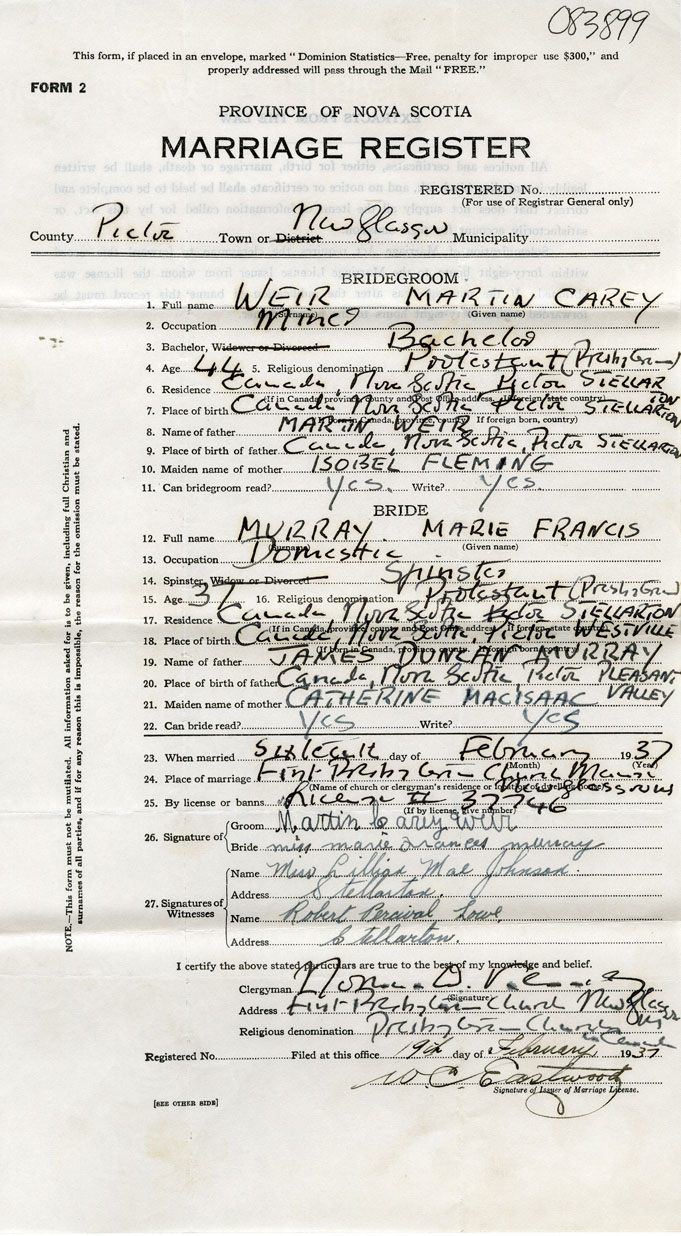 083899
This form, if placed in an envelope, marked "Dominion Statistics—Free, penalty for improper use $300," and
properly addressed will pass through the Mail "FREE."
FORM 2
PROVINCE OF NOVA SCOTIA
MARRIAGE REGISTER
REGISTERED No.
(For use of Registrar General only)
County Pictou Town or District New Glasgow Municipality
BRIDEGROOM
1. Full name WEIR MARTIN CAREY
(Surname) (Given name)
2. Occupation Miner
3. Bachelor, Widower or Divorced Bachelor
4. Age 44 5. Religious denomination Protestant (Presbyterian)
6. Residence Canada, Nova Scotia, Pictou STELLARTON
(If in Canada, province, county and Post office address, If foreign, state country)
7. Place of birth Canada, Nova Scotia Pictou STELLARTON
(If born in Canada, province, county, If foreign born, country)
8. Name of father MARTIN WEIR
9. Place of birth of father Canada, Nova Scotia, Pictou STELLARTON
10. Maiden name of mother ISOBEL FLEMING
11. Can bridegroom read? Yes. Write? Yes.
BRIDE
12. Full name MURRAY MARIE FRANCIS
(Surname) (Given name)
13. Occupation Domestic
14. Spinster, Widow or Divorced Spinster
15. Age 37 16. Religious denomination Protestant (Presbyterian)
17. Residence Canada Nova Scotia Pictou STELLARTON
(If in Canada, province, county and Post office address, If foreign, state country)
18. Place of birth Canada, Nova Scotia, Pictou WESTVILLE
(If born in Canada, province, county, If foreign born, country)
19. Name of father JAMES DUNCAN MURRAY
20. Place of birth of father Canada, Nova Scotia Pictou PLEASANT VALLEY
21. Maiden name of mother CATHERINE MACISAAC
22. Can bride read? Yes Write? Yes
23. When married Sixteenth day of February 1937
(Month) (Year)
24. Place of marriage First Presbyterian Church Manse New Glasgow
(Name of church or clergyman's residence or location of dwelling house)
25. By license or banns License 37746
(If by license, give number)
26. Signature of Groom Martin Carey Weir
Bride miss marie Frances murray
27. Signatures of Witnesses Name Miss Lillian Mae Johnson.
Address Stellarton.
Name Robert Percival Lowe,
Address Stellarton.
I certify the above stated particulars are true to the best of my knowledge and belief.
Clergyman Norman D.
(Signature)
Address First Presbyterian Church New Glasgow
Religious denomination Presbyterian Church in Canada
Registered No. Filed at this office 19th day of February 1937
W C Eastwood
Signature of Issuer of Marriage License.
[SEE OTHER SIDE]
NOTE.—This form must not be mutilated. All information asked for is to be given, including full Christian and
surnames of all parties, and if for any reason this is impossible, the reason for the omission must be stated.